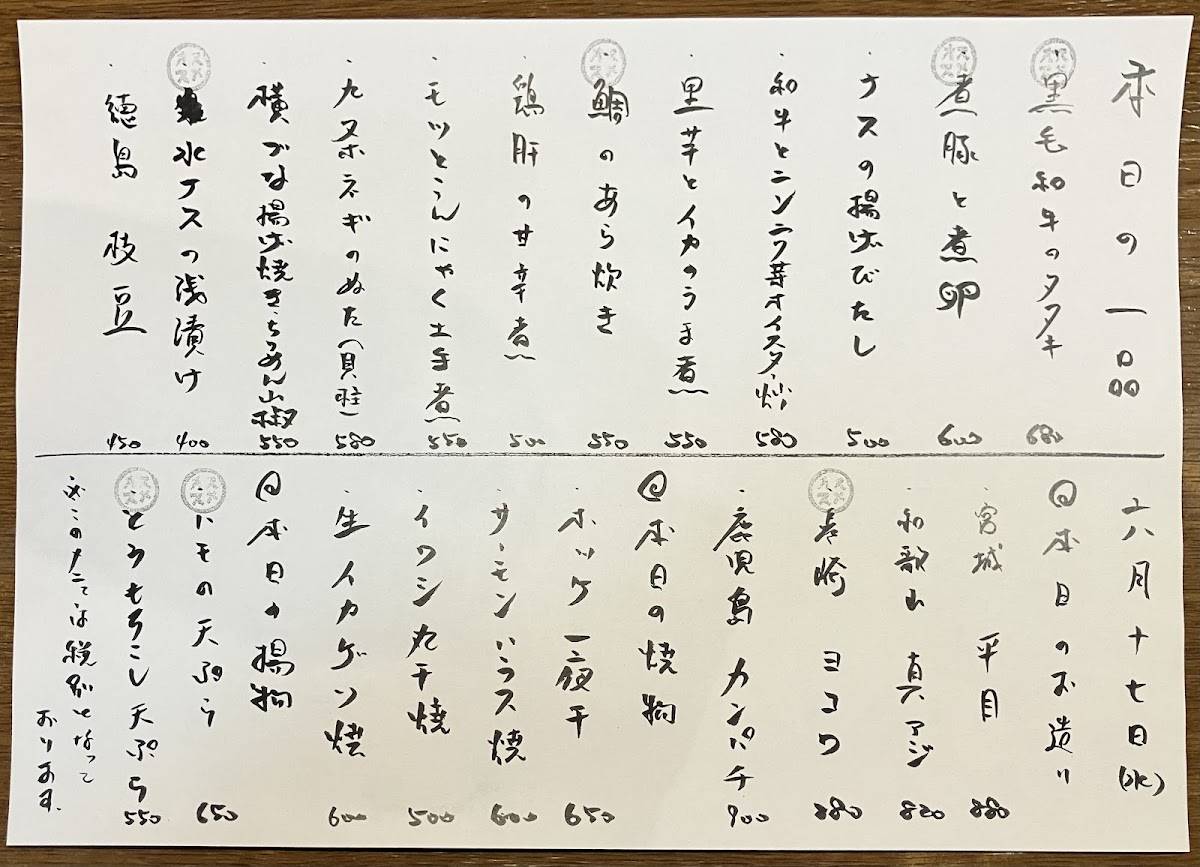 本日の一品
・黒毛和牛のタタキ 680
・煮豚と煮卵 600
・ナスの揚げびたし 500
・和牛とニンニク芽オイスター炒 580
・里芋とイカのうま煮 550
・鯛のあら炊き 550
・鶏肝の甘辛煮 500
・モツとこんにゃく土手煮 550
・九条ネギのぬた(貝柱) 580
・横づな揚げ焼き ちりめん山椒 550
・水ナスの浅漬け 400
・徳島 枝豆 450
六月十七日(水)
◎本日のお造り
・宮城 平目 880
・和歌山 真アジ 820
・長崎 ヨコワ 880
・鹿児島 カンパチ 900
◎本日の焼物
・ホッケ一夜干 650
・サーモンハラス焼 600
・イワシ丸干焼 500
・生イカゲソ焼 600
◎本日の揚物
・ハモの天ぷら 650
・とうもろこし天ぷら 550
※このメニューは税別となって
おります。
オススメ
オススメ
オススメ
オススメ
オススメ
オススメ
オススメ